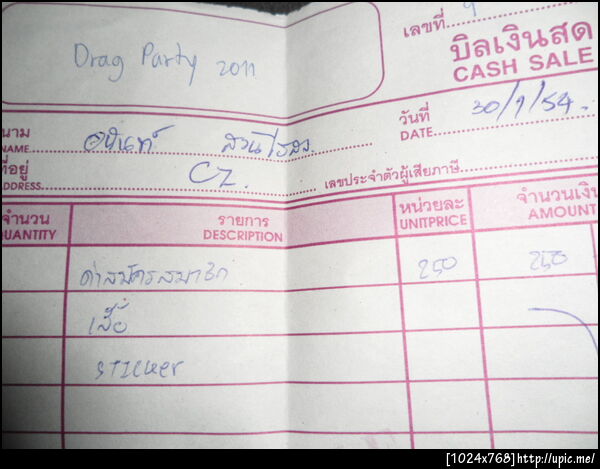 Drag Party 2011
เลขที่
บิลเงินสด
CASH SALE
วันที่
DATE 30/1/54
นาม
NAME
ที่อยู่
ADDRESS CZ
เลขประจำตัวผู้เสียภาษี
จำนวน รายการ หน่วยละ จำนวนเงิน
QUANTITY DESCRIPTION UNITPRICE AMOUNT
ค่าสมัครสมาชิก 250 250
เสื้อ
STICKER
[1024x768]http://upic.me/